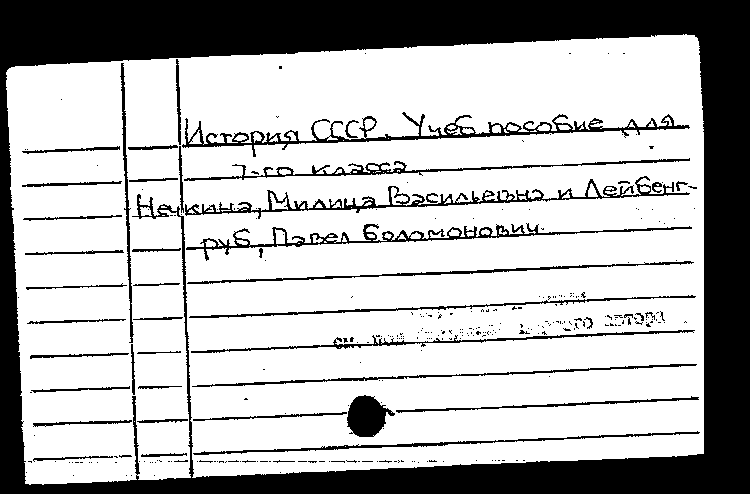 История СССР. Учеб. пособие для
7-го класса.
Нечкина, Милица Васильевна и Лейбенг-
руб, Павел Соломонович.
см. под первого автора